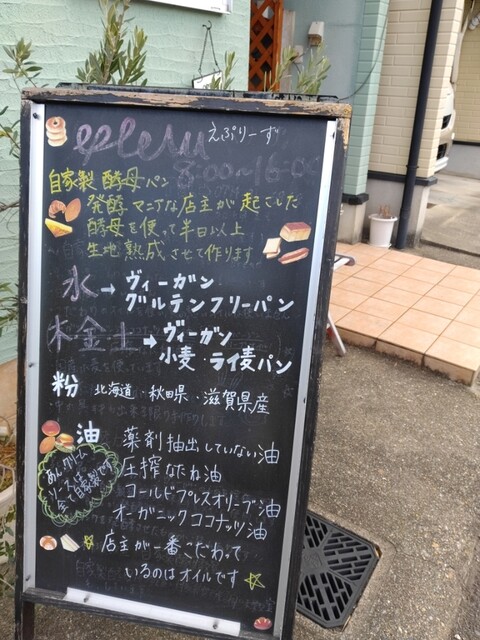 えぷりーず
8:00〜16:00
自家製 酵母パン
発酵マニアな店主が起こした
酵母を使って半日以上
生地熟成させて作ります
水→ヴィーガン
グルテンフリーパン
木金土→ヴィーガン
小麦・ライ麦パン
粉 北海道・秋田県・滋賀県産
油 薬剤抽出していない油
圧搾なたね油
コールドプレスオリーブ油
オーガニックココナッツ油
あん、クリーム
ソースも
全て自家製です
店主が一番こだわって
いるのはオイルです